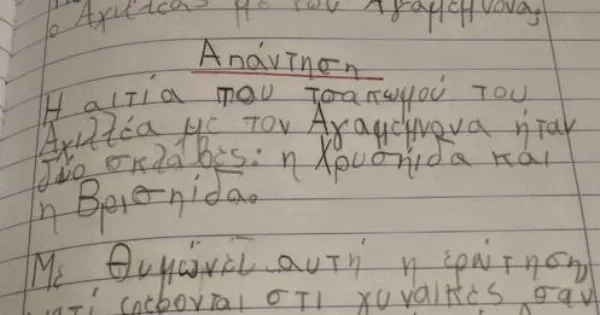 ο Αχιλλέας με τον Αγαμέμνονα;
Απάντηση
Η αιτία που τσαπωμού του
Αχιλλέα με τον Αγαμέμνονα ήταν
δύο σκλάβες: η Χρυσηίδα και
η Βρισηίδα.
Με θυμώνει αυτή η ερώτηση,
γιατί φέρονται στι γυναίκες σαν